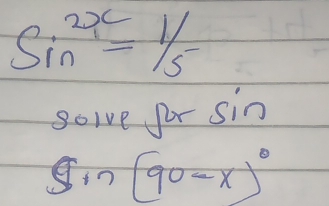 Sin²ˣ = 1/5
solve for sin
Sin (90-x)°